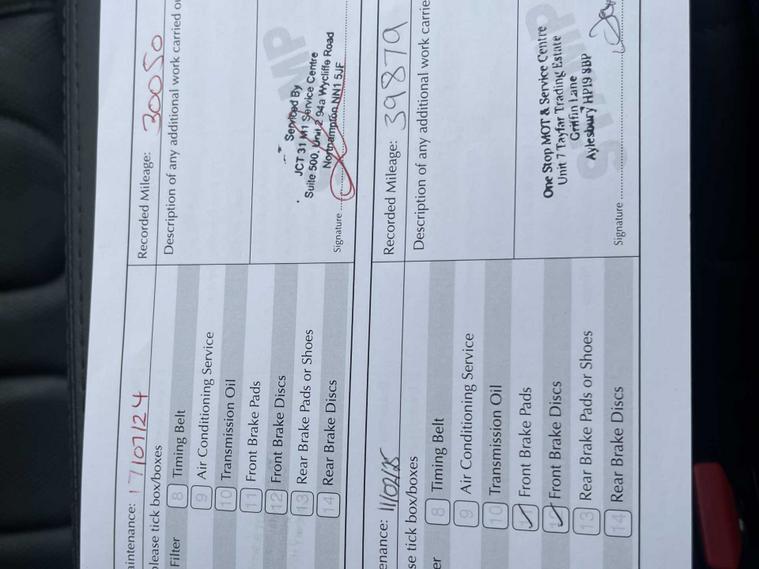 aintenance: 17/07/24
Recorded Mileage: 30050
please tick box/boxes
Description of any additional work carried ou
Filter
8 Timing Belt
9 Air Conditioning Service
10 Transmission Oil
11 Front Brake Pads
12 Front Brake Discs
13 Rear Brake Pads or Shoes
14 Rear Brake Discs
Serviced By
JCT 31 M1 Service Centre
Suite 500, Unit 2, 94a Wycliffe Road
Northampton NN1 5JF
Signature
enance: 11/02/25
Recorded Mileage: 39879
se tick box/boxes
Description of any additional work carrie
er
8 Timing Belt
9 Air Conditioning Service
10 Transmission Oil
Front Brake Pads
Front Brake Discs
13 Rear Brake Pads or Shoes
14 Rear Brake Discs
One Stop MOT & Service Centre
Unit 7 Tayfar Trading Estate
Griffin Lane
Aylesbury HP19 8BP
Signature